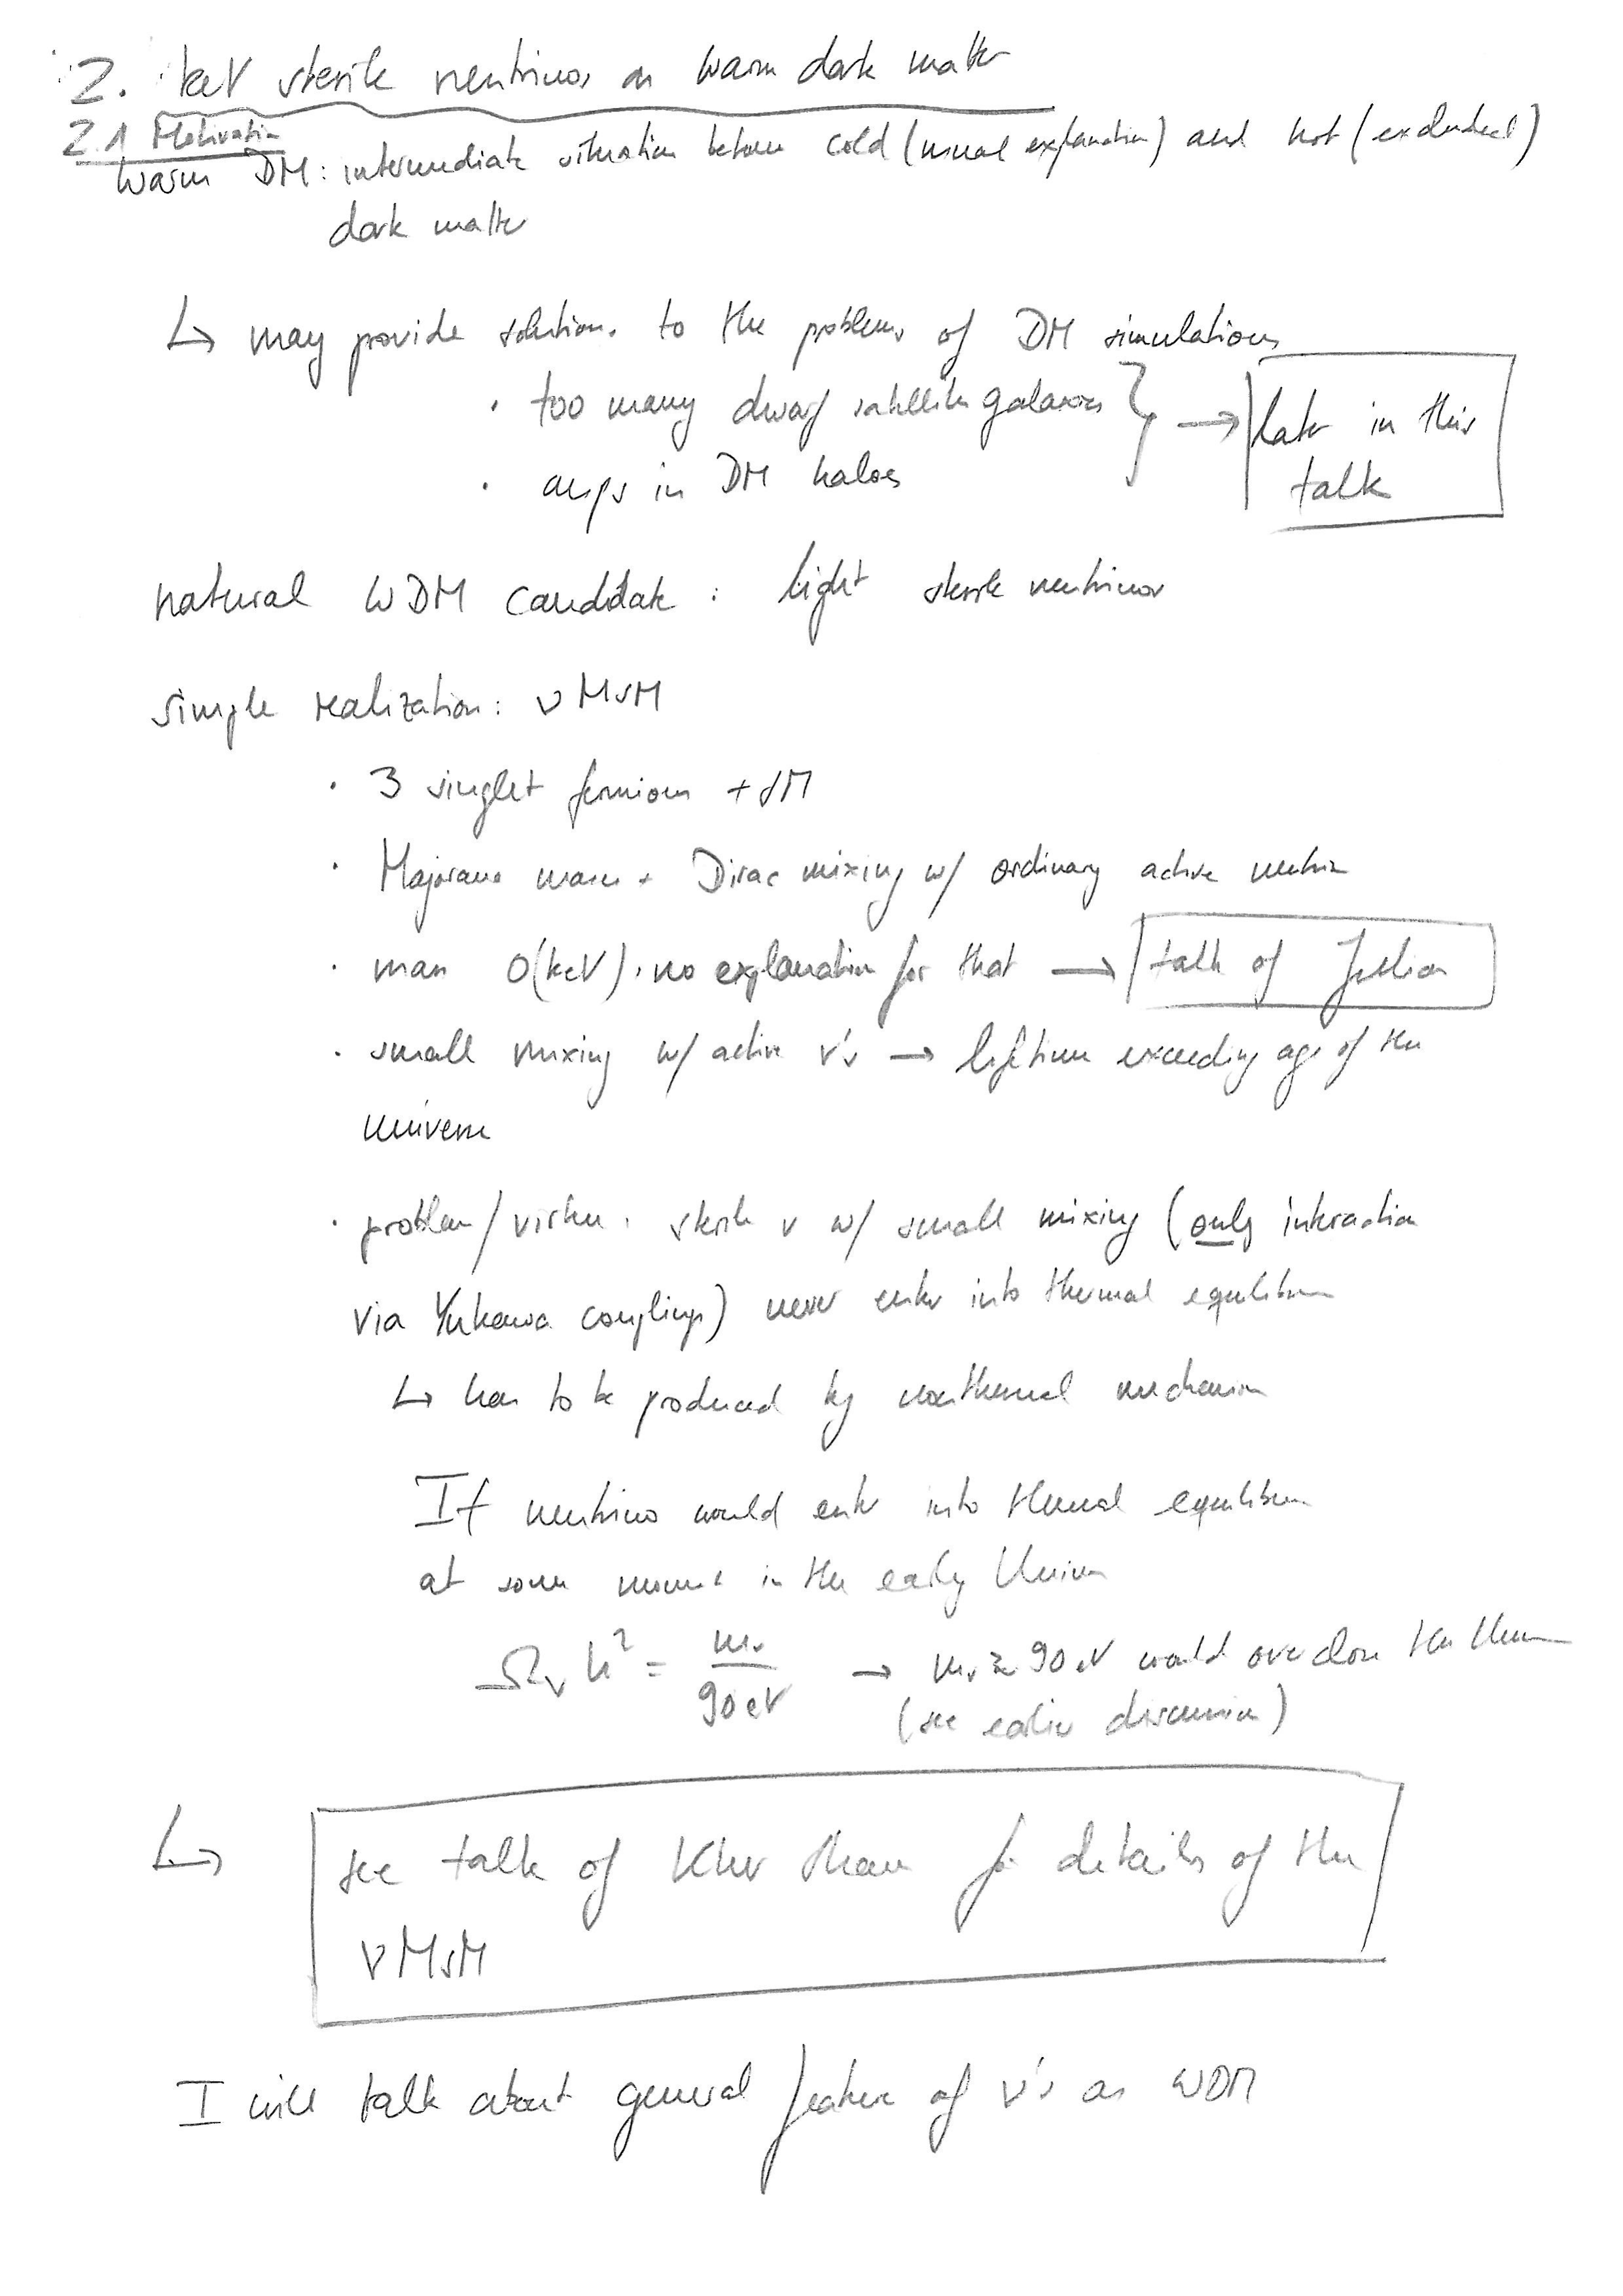 2. keV sterile neutrinos as warm dark matter
2.1 Motivation
Warm DM: intermediate situation between cold (usual explanation) and hot (excluded)
dark matter
↳ may provide solutions to the problems of DM simulations
· too many dwarf satellite galaxies } → later in this
· cusps in DM halos
talk
natural WDM candidate : light sterile neutrinos
simple realization: νMSM
· 3 singlet fermions + SM
· Majorana masses + Dirac mixing w/ ordinary active neutrinos
· mass O(keV), no explanation for that → talk of
· small mixing w/ active ν's → lifetime exceeding age of the
universe
· problem/virtue: sterile ν w/ small mixing (only interaction
via Yukawa couplings) never enter into thermal equilibrium
↳ has to be produced by nonthermal mechanism
If neutrino would enter into thermal equilibrium
at some moment in the early Universe
Ω_ν h² = m_ν / 90 eV → m_ν ≳ 90 eV would overclose the Universe
(see earlier discussion)
↳ see talk of for details of the
νMSM
I will talk about general features of ν's as WDM